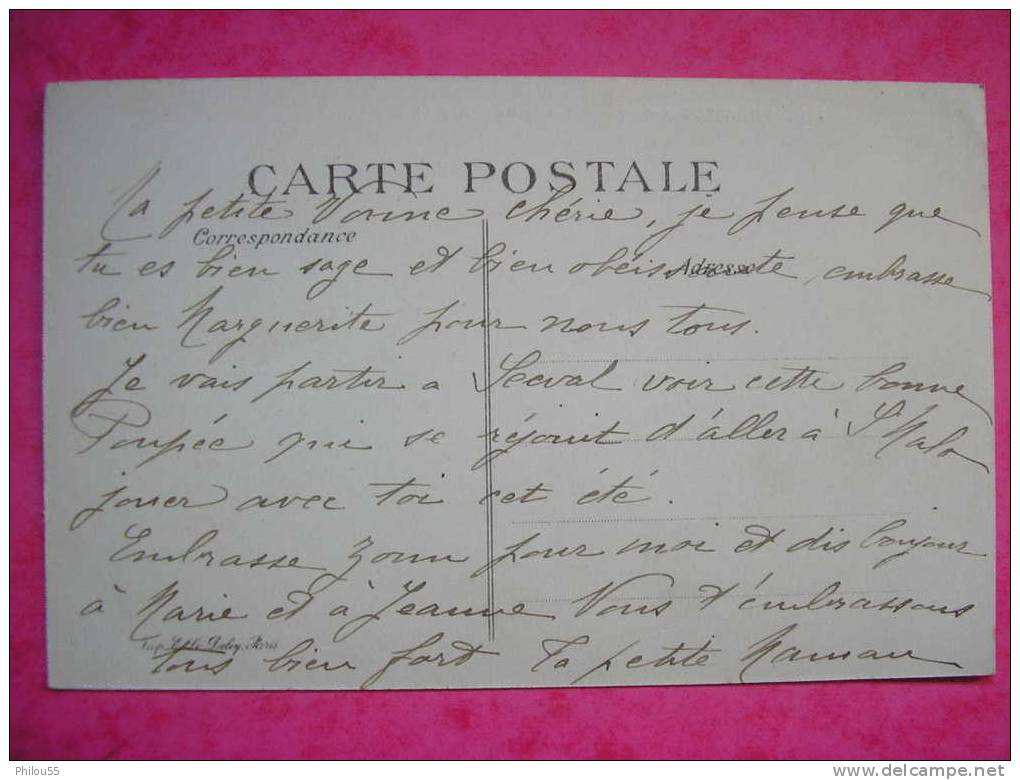 CARTE POSTALE
Ma petite chérie, je pense que
Correspondance
Adresse
tu es bien sage et bien obéissante, embrasse
bien Marguerite pour nous tous.
Je vais partir a voir cette bonne
Poupée qui se réjouit d'aller à St Malo
jouer avec toi cet été.
Embrasse pour moi et dis bonjour
à Marie et à Jeanne Nous t'embrassons
Paris
tous bien fort Ta petite Maman
Philou55
www.delcampe.net